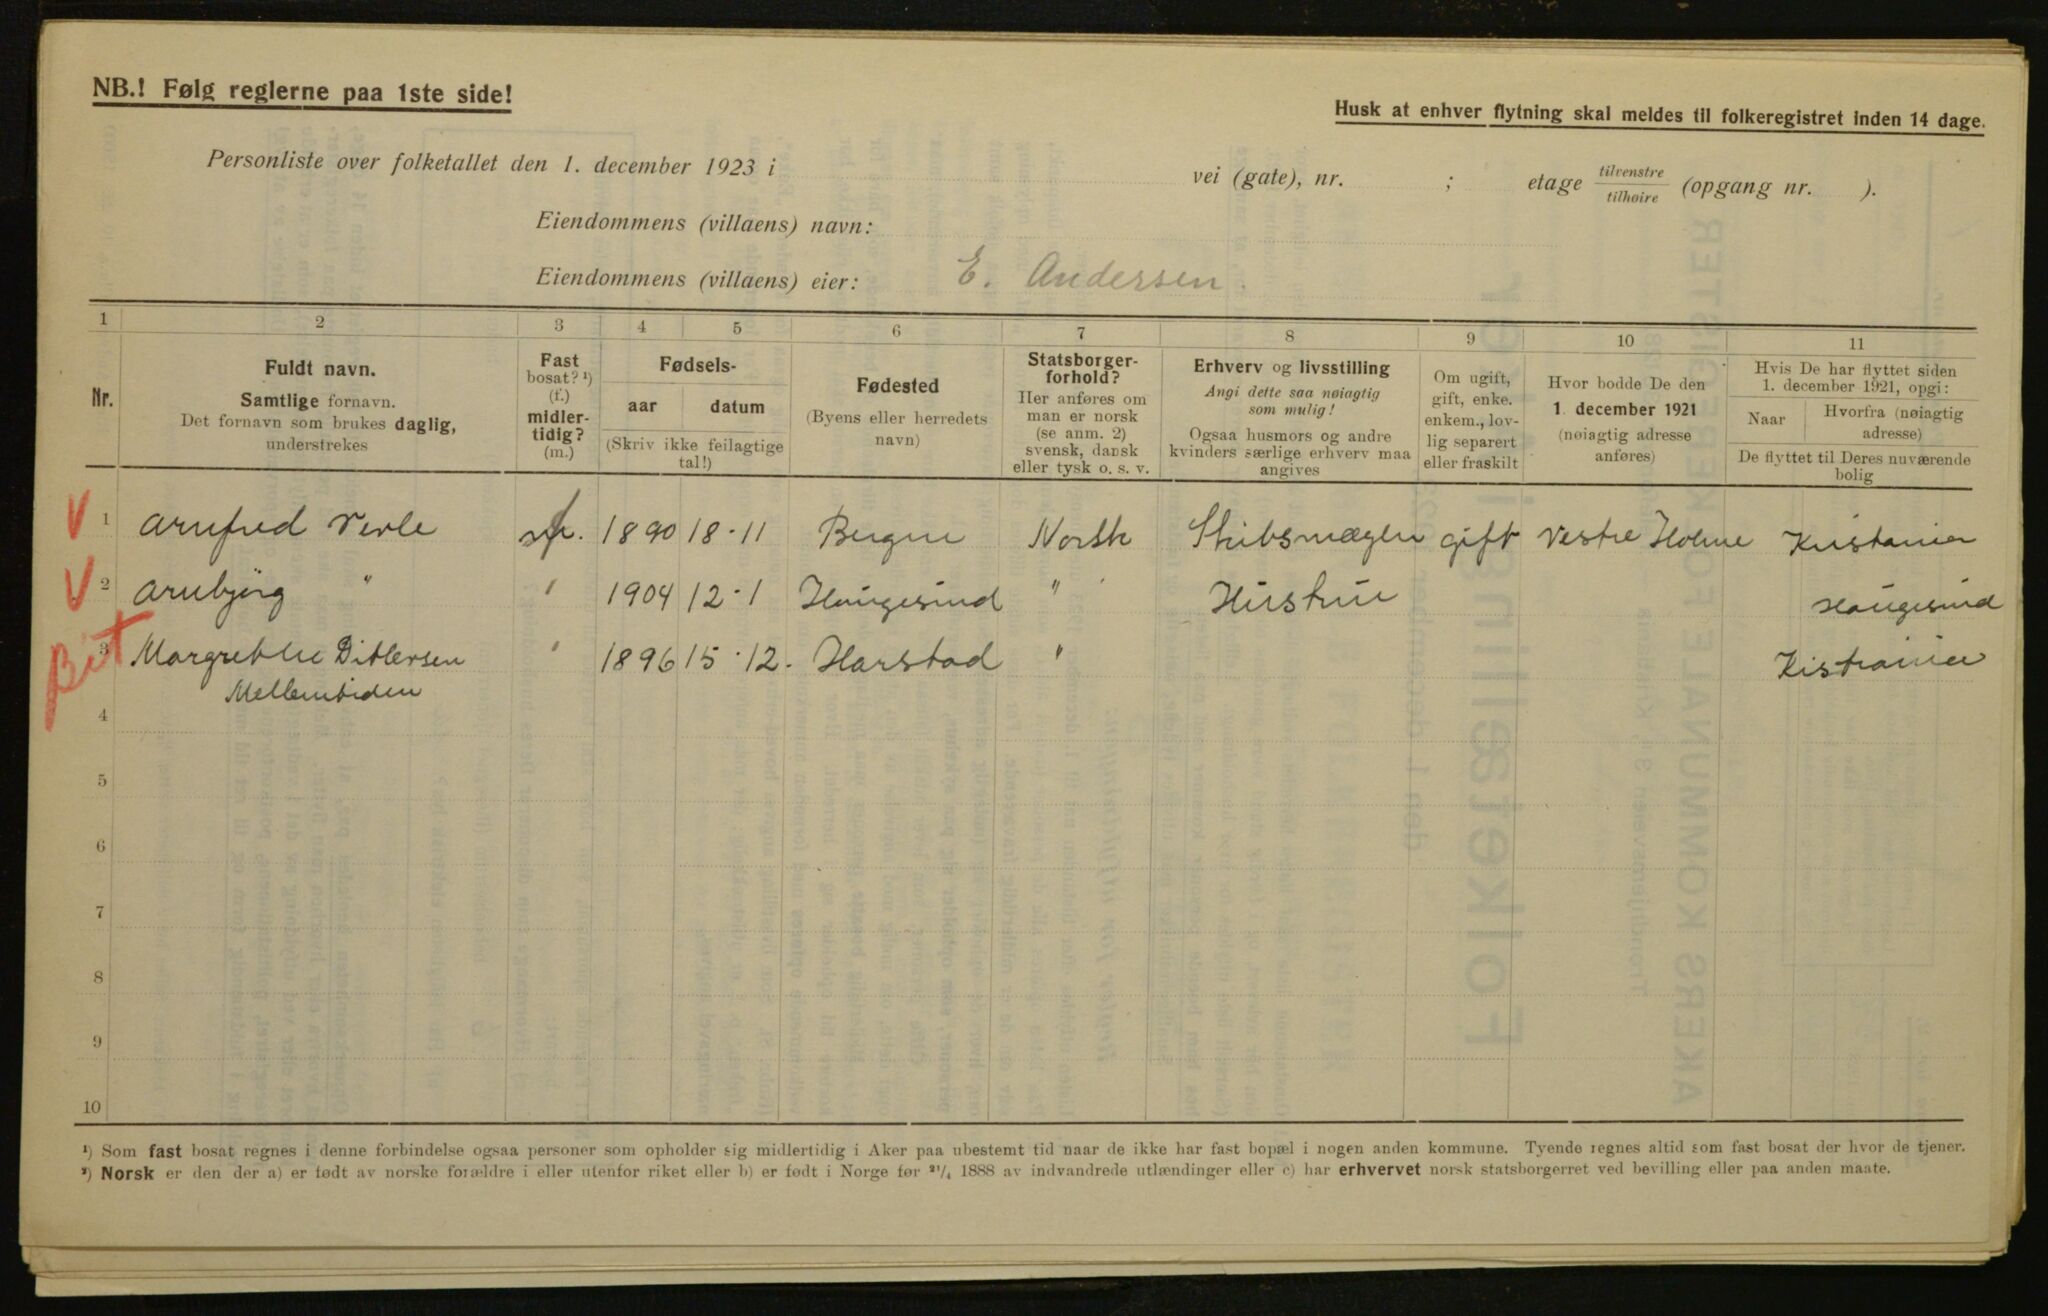 NB.! Følg reglerne paa 1ste side!
Husk at enhver flytning skal meldes til folkeregistret inden 14 dage.
Personliste over folketallet den 1. december 1923 i vei (gate), nr. ; etage tilvenstre tilhøire (opgang nr. ).
Eiendommens (villaens) navn:
Eiendommens (villaens) eier: E. Andersen.
1 2 3 4 5 6 7 8 9 10 11
Nr.
Fuldt navn.
Samtlige fornavn.
Det fornavn som brukes daglig,
understrekes
Fast
bosat? ¹)
(f.)
midler-
tidig?
(m.)
Fødsels-
aar datum
(Skriv ikke feilagtige
tal!)
Fødested
(Byens eller herredets
navn)
Statsborger-
forhold?
Her anføres om
man er norsk
(se anm. 2)
svensk, dansk
eller tysk o. s. v.
Erhverv og livsstilling
Angi dette saa nøiagtig
som mulig!
Ogsaa husmors og andre
kvinders særlige erhverv maa
angives
Om ugift,
gift, enke.
enkem., lov-
lig separert
eller fraskilt
Hvor bodde De den
1. december 1921
(nøiagtig adresse
anføres)
Hvis De har flyttet siden
1. december 1921, opgi:
Naar
Hvorfra (nøiagtig
adresse)
De flyttet til Deres nuværende
bolig
V 1 Arnfred Verle 1890 18-11 Bergen Norsk Skibsmægler gift Vestre Holme Kristania
V 2 Arnbjörg " " 1904 12-1 Haugesund " Hustrue Haugesund
Bit 3 Margrethe Ditlersen " 1896 15-12. Harstad " Kistrania
Mellemtiden
4
5
6
7
8
9
10
¹) Som fast bosat regnes i denne forbindelse ogsaa personer som opholder sig midlertidig i Aker paa ubestemt tid naar de ikke har fast bopæl i nogen anden kommune. Tyende regnes altid som fast bosat der hvor de tjener.
²) Norsk er den der a) er født av norske forældre i eller utenfor riket eller b) er født i Norge før ²¹/₄ 1888 av indvandrede utlændinger eller c) har erhvervet norsk statsborgerret ved bevilling eller paa anden maate.